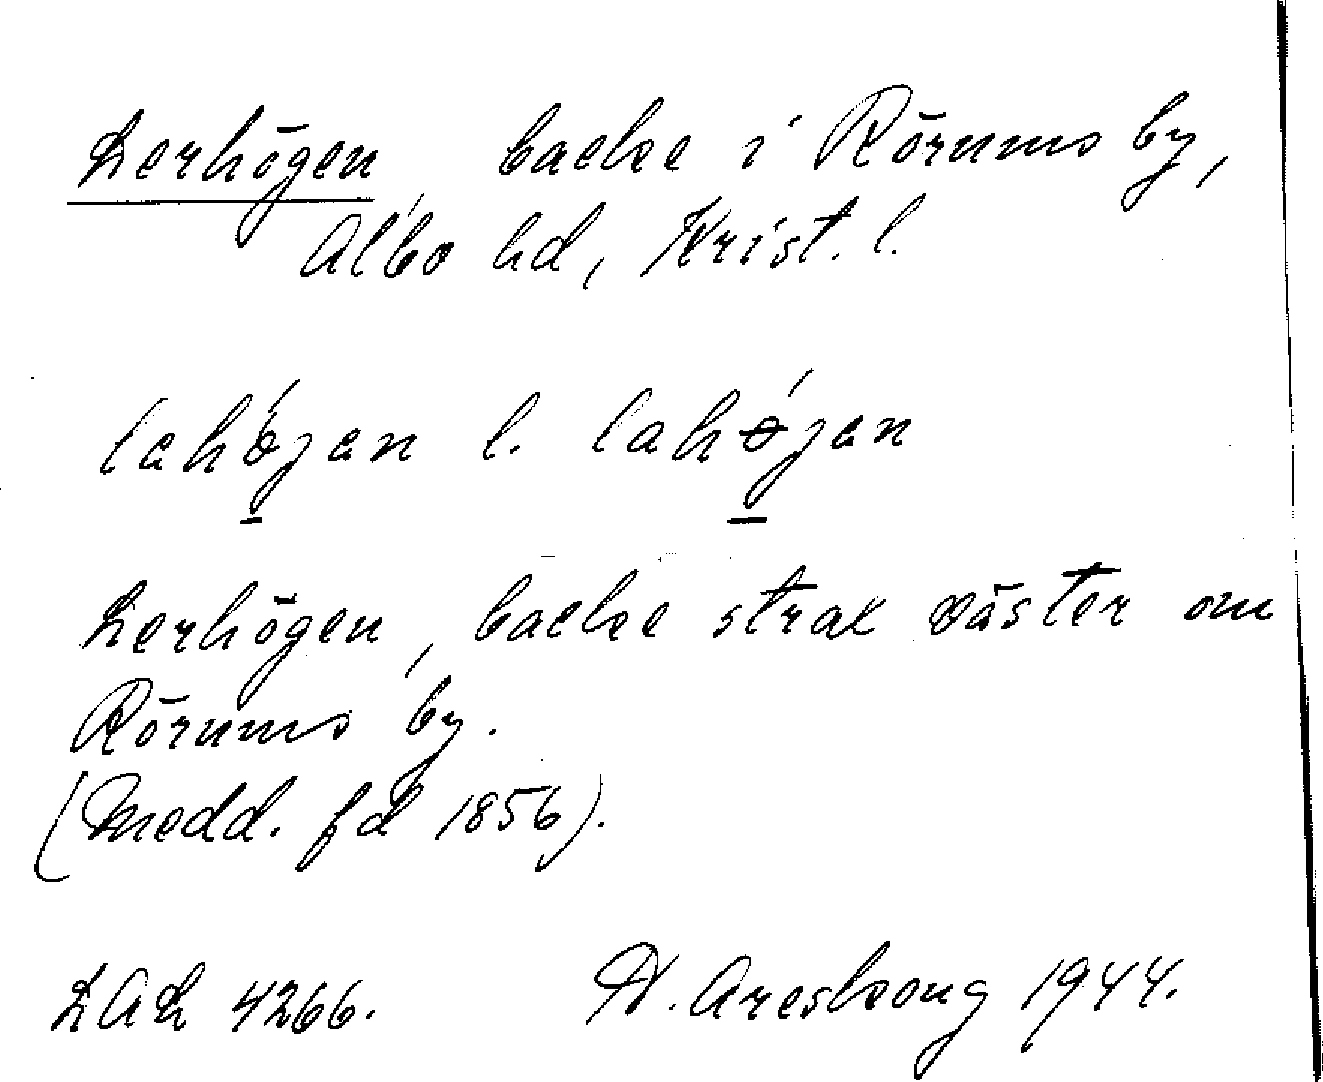 Lerhögen, backe i Rörums by,
Albo hd, Krist. l.
lahǿjan l. lahǿjan
Lerhögen, backe strax väster om
Rörums by.
(Medd. fd 1856).
LAL 4266. H. Areskoug 1944.